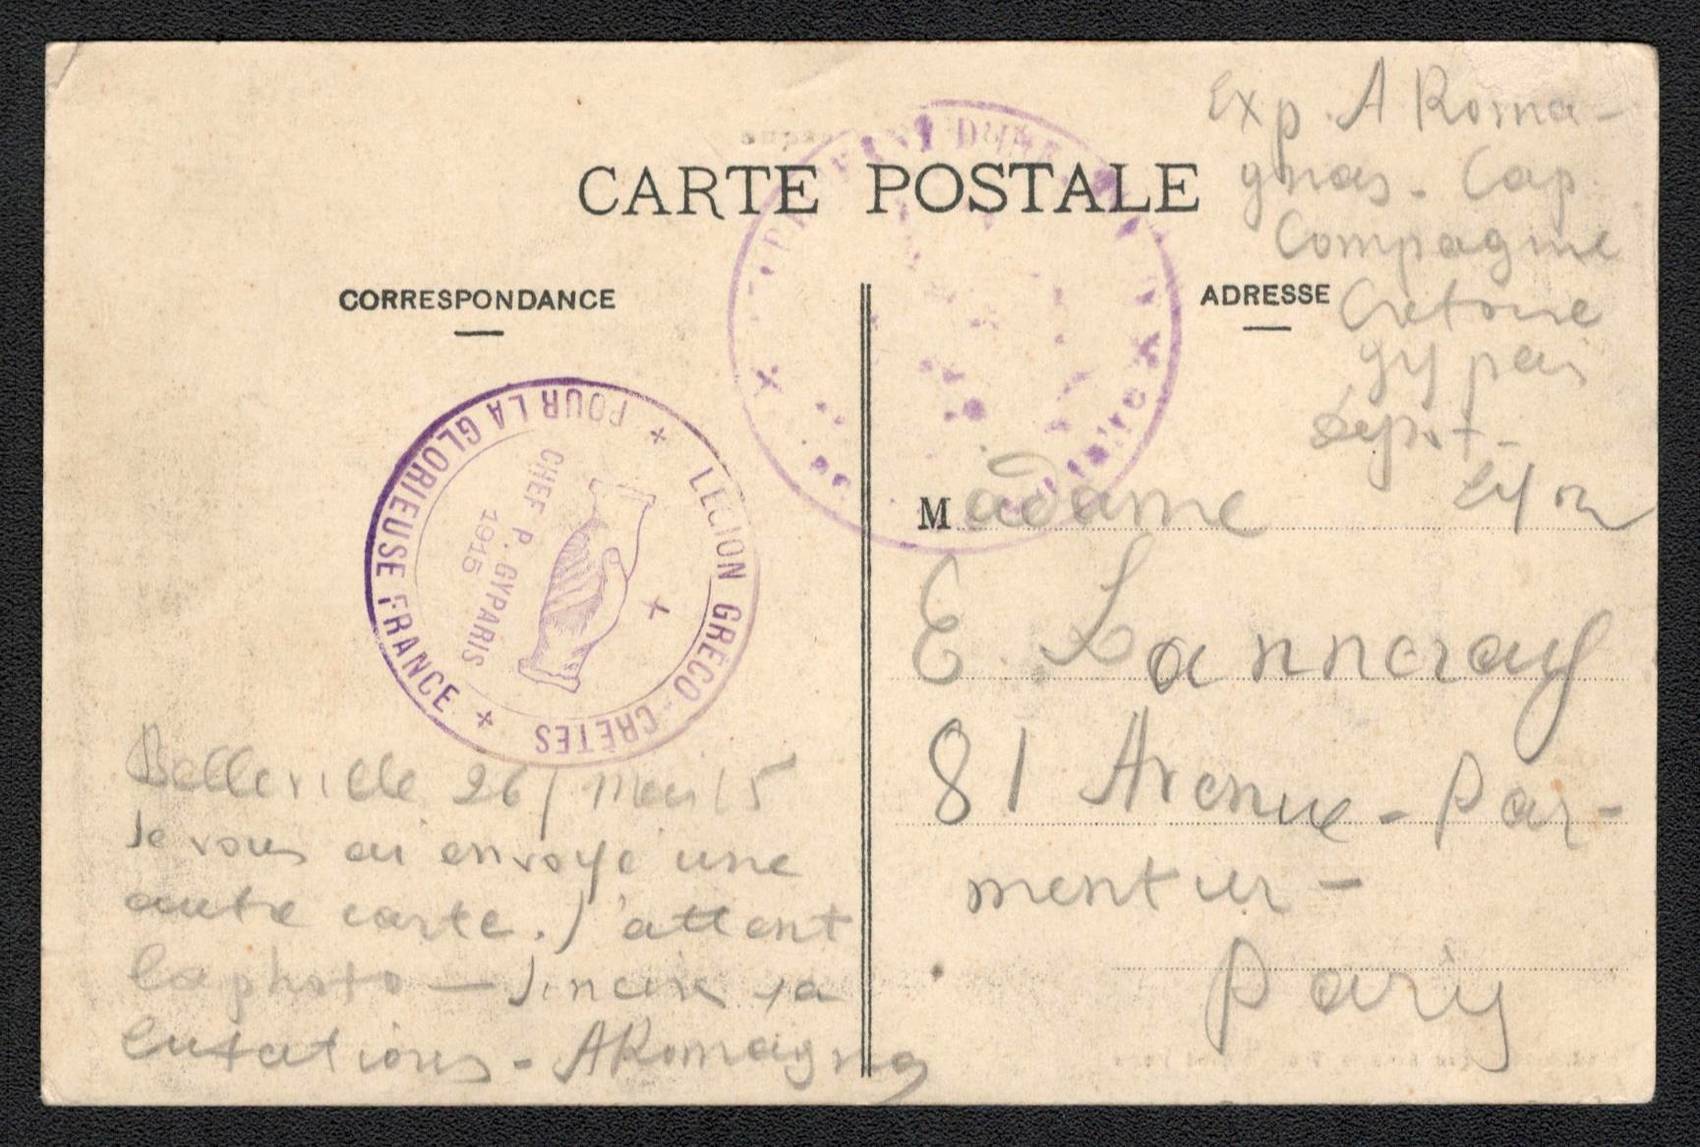 CARTE POSTALE
CORRESPONDANCE
ADRESSE
Exp. A Roma-
gnas - Cap
Compagnie
Cretoise
gypari
Depot -
Lyon
POUR LA GLORIEUSE FRANCE
LEGION GRECO-CRETES
CHEF P. GYPARIS
1915
Belleville 26/ Mai 15
Je vous ai envoye une
autre carte. J'attent
la photo — Sincere sa
lutations - ARomagna
Madame
E.
81 Avenue - Par-
mentier -
Paris